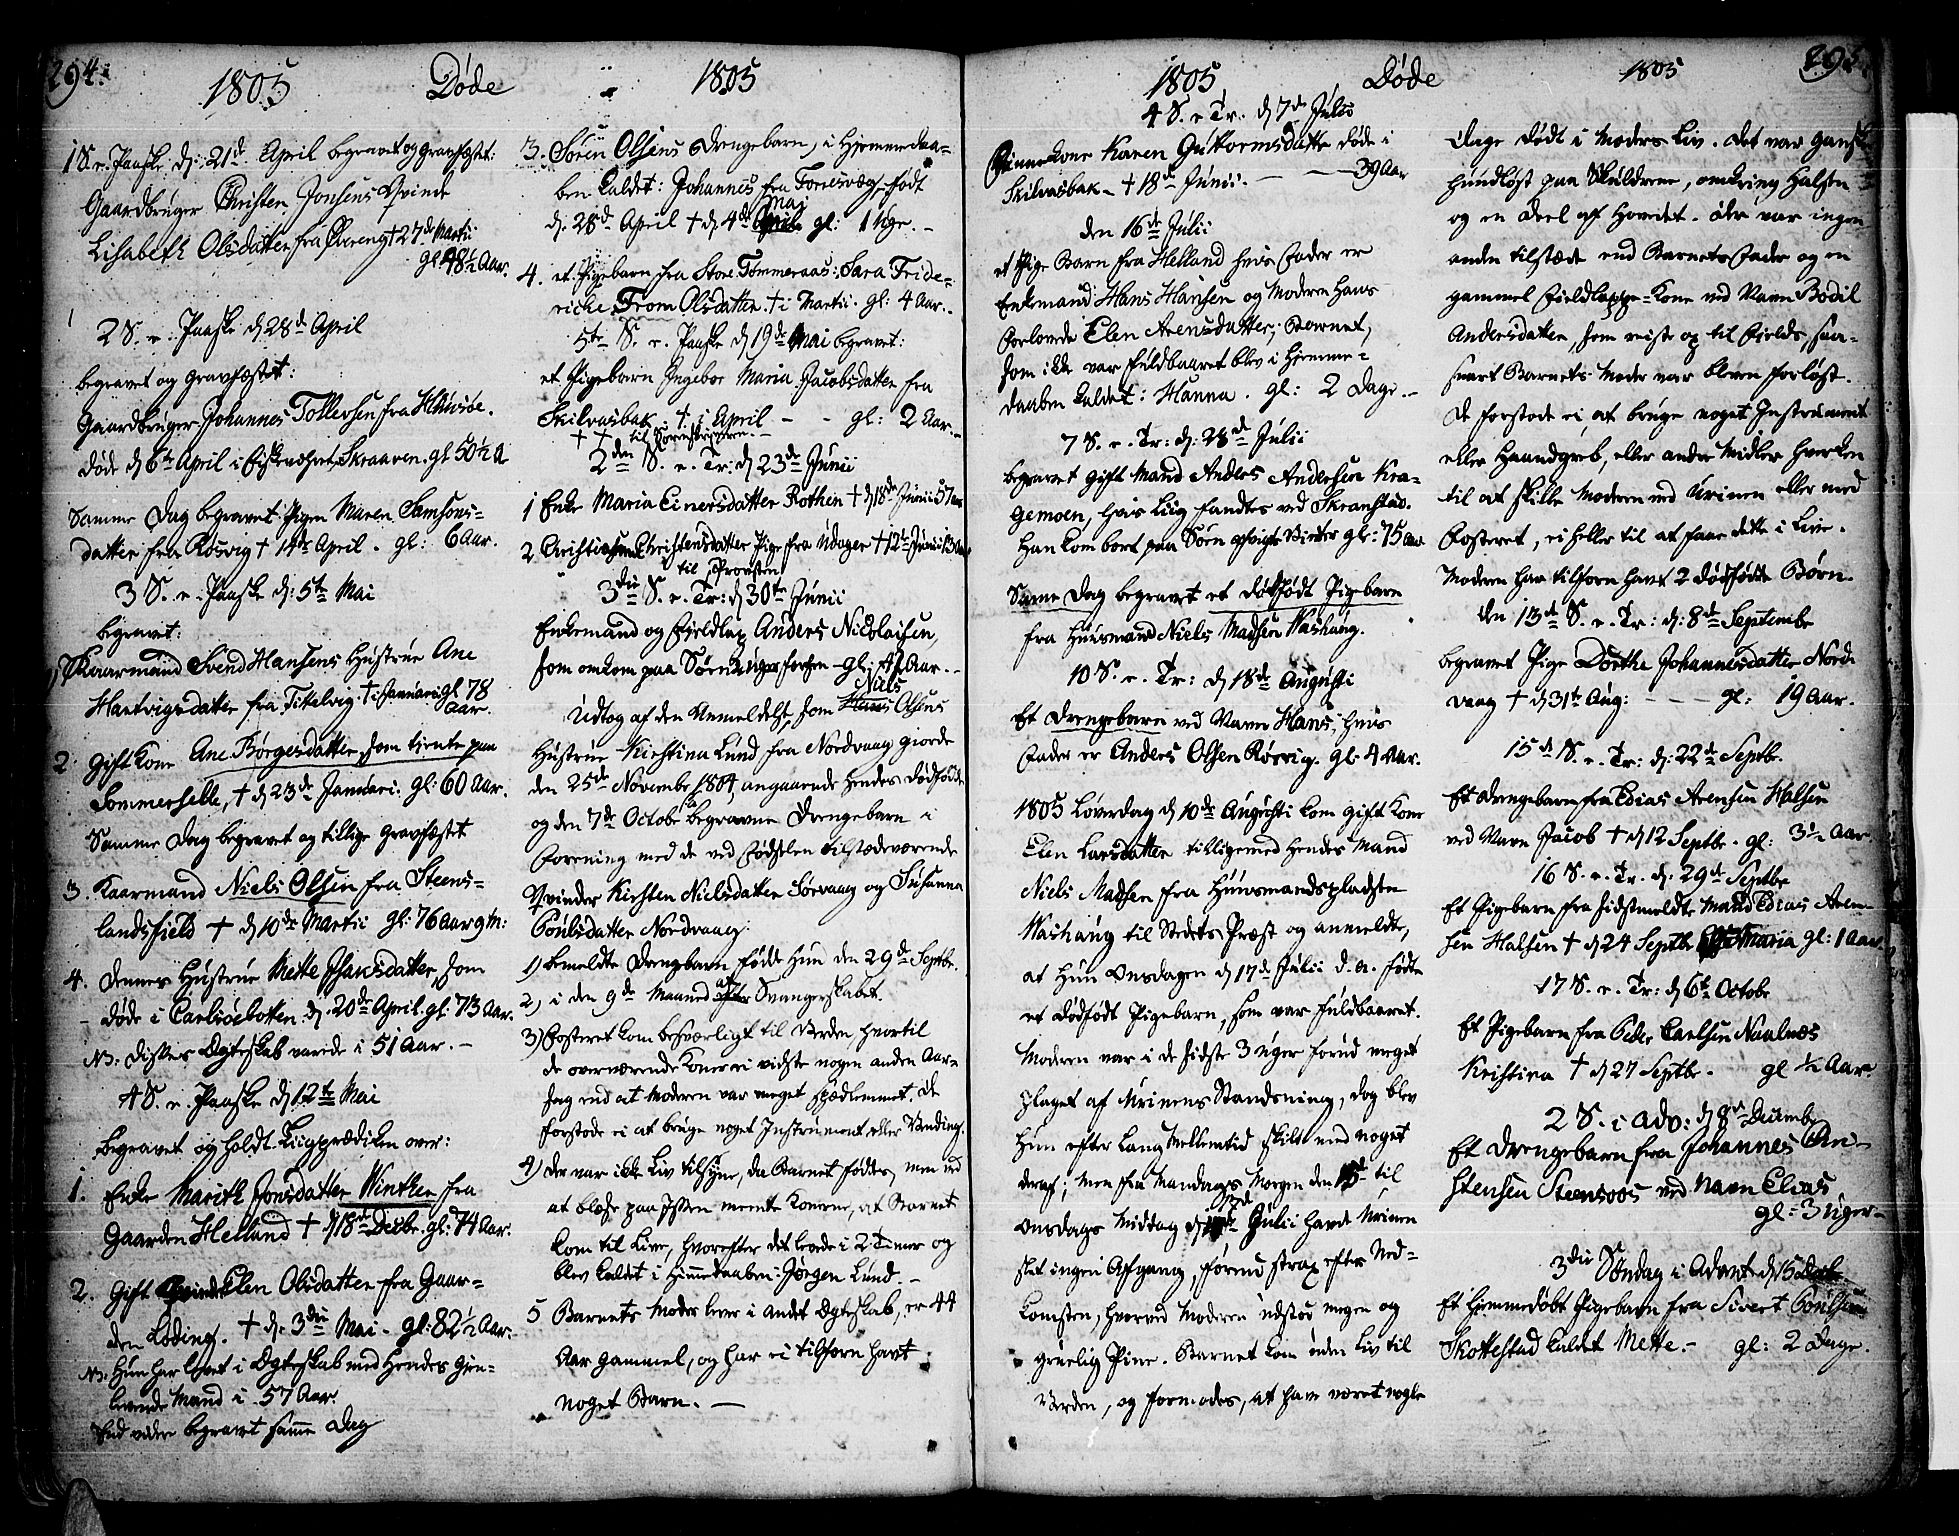 294.
1805 Døde 1805
1 S. e. Paaske d: 21de April begravet og gravfæstet:
Gaardbruger Christen Jonsens Qvinde
Lisabeth Olsdatter fra Qværeng † 27de Martii
gl: 48½ Aar.
2 S. e. Paaske d 28de April
begravet og gravfæstet:
Gaardbruger Johannes Tollefsen fra
døde d 6te April i Fiskeværet Skraaven. gl 50½ A
Samme Dag begravet Pigen Maren Samsons-
datter fra Røsvig † 14de April. gl: 6 Aar.
3 S. e. Paaske d: 5te Mai
begravet:
1) Kaarmand Svend Hansens Hustrue Ane
Hartvigsdatter fra Tittelvig. † i Januari gl 78
Aar.
2. Gift Kone Ane Børgesdatter, som tiente paa
Sommerselle, † d 23de Januari. gl: 60 Aar.
Samme Dag begravet og tillige gravfæstet
3. Kaarmand Niels Olsen fra Steens-
landsfield † d 10de Martii gl: 76 Aar 9 M:
4. Dennes Hustrue Mette Hansdatter, som
døde i Carlsøebotten d. 20de April gl: 73 Aar.
NB: disses Ægteskab varede i 51 Aar. -
4 S. e. Paaske d 12te Mai
begravet og holdt Liigprædiken over:
1. Enke Marith Jonsdatter Winther fra
Gaarden Helland † d 18de Decbr. gl: 74 Aar.
2. Gift Qvinde Elen Olsdatter fra Gaar-
den Løding. † d. 3die Mai. gl: 82½ Aar.
NB: Hun har levet i Ægteskab med Hendes gien-
levende Mand i 57 Aar.
End videre begravet samme Dag
3. Søren Olsens Drengebarn, i Hjemmedaa-
ben kaldet: Johannes fra Torresvæg, født
d. 28de April † d 4de Mai gl: 1 Uge. -
4. et Pigebarn fra Store Tømmeraas: Sara Fride-
riche From Olsdatter. † i Martii. gl: 4 Aar. -
5te S. e. Paaske d 19de Mai begravet:
et Pigebarn Ingebor Maria Jacobsdatter fra
Skilvasbak. † i April - - gl: 2 Aar. -
†† til Sørenskriveren. -
2den S. e. Tr: d 23de Junii
1 Enke Maria Einersdatter Rothen † d 18de Junii 57 Aar
2. Christensdatter Pige fra † 12te Junii 13 Aar
til Provsten
3die S. e. Tr: d 30te Junii
Enkemand og Fieldlap Anders Nicolaisen,
som omkom paa - gl: 42 Aar. -
Udtog af den Anmeldelse, som Niels Olsens
Hustrue Kirstina Lund fra Nordvaag giorde
den 25de November 1804, angaaende Hendes dødfødde
og den 7de Octobr begravne Drengebarn i
Forening med de ved Fødselen tilstædeværende
Qvinder Kirsten Nielsdatter Sørvaag og Susanna
Povlsdatter Nordvaag:
1) bemeldte Drengebarn fødde Hun den 29de Septbr.
2) i den 9de Maaned af Svangerskabet.
3) Fosteret kom besværligt til Verden, hvortil
de overværende Koner ei vidste nogen anden Aar-
sag end at Moderen var meget spædlemmet. De
forstode ei at bruge noget Instrument, eller Vending.
4) Der var ikke Liv tilsyne, da Barnet fødtes, men ved
at blæse paa Issen meente Konerne, at Barnet
kom til Live, hvorefter det levede i 2 Timer og
blev kaldet i Himmedaaben: Jørgen Lund. -
5 Barnets Moder lever i andet Ægteskab, er 44
Aar gammel, og har ei tilforn havt
noget Barn. -
295.
1805 Døde 1805
4 S. e. Tr. d 7de Julii
Kone Karen Guttormsdatter døde i
Skilvasbak - † 18de Junii. - - 39 Aar
den 16de Julii
et Pige Barn fra Helland hvis Fader er
Enkemand Hans Hansen og Moderen Hans
Forlovede Elen Arensdatter; Barnet,
som ikke var fuldbaaret blev i Hjemme-
daaben kaldet: Hanna. gl: 2 Dage. -
7 S. e. Tr: d: 28de Julii
begravet gift Mand Anders Andersen Kra-
gemoen, hvis Liig fandtes ved Skranstad.
Han kom bort paa Søen afvigte Vinter gl: 75 Aar
Same Dag begravet et dødfødt Pigebarn
fra Huusmand Niels Madsen Washaug.
10 S. e. Tr: d 18de Augusti
Et Drengebarn ved Navn Hans, hvis
Fader er Anders Olsen Røsvig. gl: 4 Aar.
1805 Løverdag d 10de Augusti kom gift Kone
Elen Larsdatter tilligemed Hendes Mand
Niels Madsen fra Huusmandspladsen
Washaug til Stedets Præst og anmeldte,
at Hun Onsdagen d 17de Julii d. A. fødte
et dødfødt Pigebarn, som var fuldbaaret.
Moderen var i de sidste 3 Uger forud meget
plaget af Urinens Standsning, dog blev
Hun efter lang Mellemtid skilt med noget
deraf; men fra Mandags Morgen den 15de til
Onsdags Middag d Julii havde Urinen
slet ingen Afgang, førend strax efter Ned-
komsten, hvorved Moderen udstod megen og
gruelig Pine. Barnet kom uden Liv til
Verden, og formodes, at have været nogle
Dage dødt i Moders Liv. Det var ganske
hundløst paa Skuldrene, omkring Halsen
og en Deel af Hovedet. Der var ingen
anden tilstæde end Barnets Fader og en
gammel Fieldlappe-Kone ved Navn Bodil
Andersdatter, som reiste op til Fields, saa-
snart Barnets Moder var bleven forløst.
De forstode ei, at bruge noget Instrument
eller Haandgreb, eller andre Midler hverken
til at skille Moderen ved Urinen eller med
Fosteret, ei heller til at faae dette i Live.
Moderen har tilforn havt 2 dødfødte Børn.
den 13de S. e. Tr: d: 8de Septembr
begravet Pige Dorthe Johannesdatter Nord-
vaag † d 31te Aug: - - - gl: 19 Aar.
15de S. e. Tr: d: 22de Septbr.
Et Drengebarn fra Edias Arensen Halsen
ved Navn Jacob † d 12 Septbr. gl: 3½ Aar
16 S. e. Tr. d: 29de Septbr
Et Pigebarn fra sidstmeldte Mand Edias Aren-
sen Halsen † d 24 Septbr Maria gl: 1 Aar.
17 S. e. Tr: d 6te Octobr
Et Pigebarn fra Peder Carlsen Naalnæs
Kristina † d 27 Septbr. gl ½ Aar.
2 S. i Adv: d 8de Decembr
Et Drengebarn fra Johannes An-
stensen Steensoos ved Navn Elias
gl: 3 Uger -
3die Søndag i Advent d 15 Decbr.
Et hjemmedøbt Pigebarn fra Sivert Povlsen
Skottestad kaldet Mette. - gl: 2 Dage.